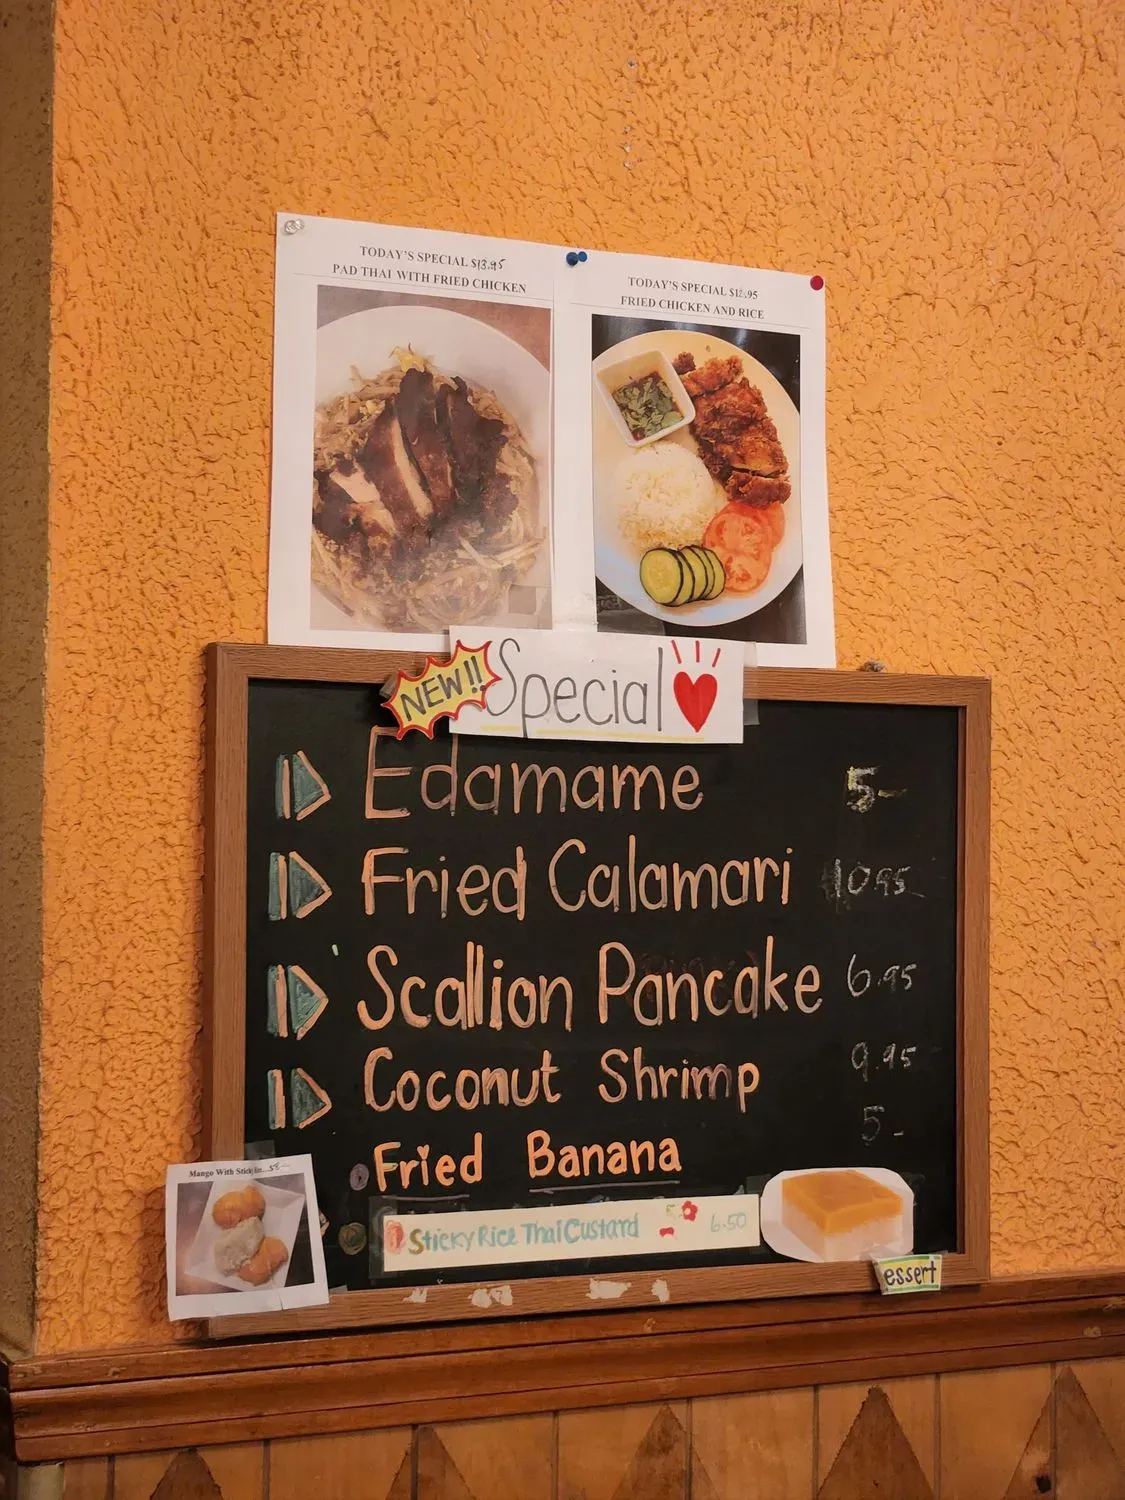 TODAY'S SPECIAL $13.95
PAD THAI WITH FRIED CHICKEN
TODAY'S SPECIAL $12.95
FRIED CHICKEN AND RICE
NEW!! Special
Edamame 5-
Fried Calamari 10.95
Scallion Pancake 6.95
Coconut Shrimp 9.95
Fried Banana 5-
Mango With Sticky
Sticky Rice Thai Custard 6.50
essert